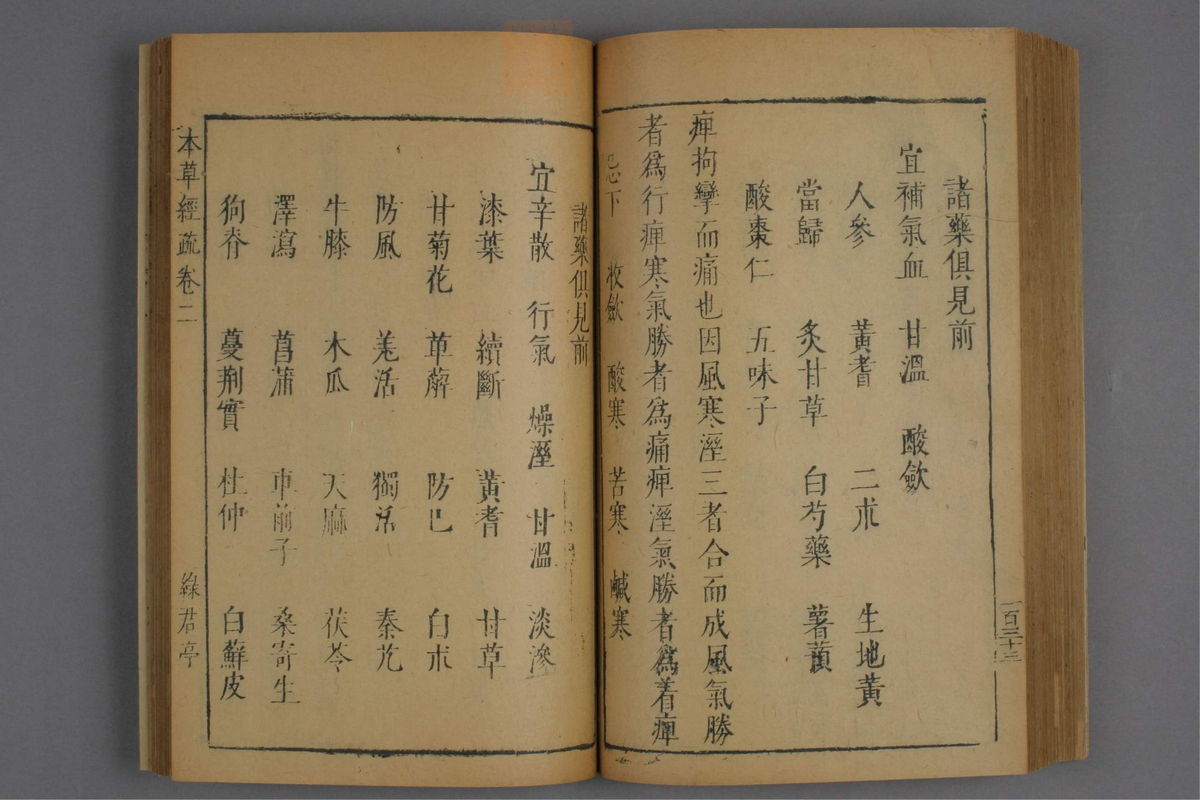 諸藥俱見前
宜補氣血 甘溫 酸歛
人參 黃耆 二朮 生地黃
當歸 炙甘草 白芍藥 薯蕷
酸棗仁 五味子
痺拘攣而痛也因風寒溼三者合而成風氣勝
者為行痺寒氣勝者為痛痺溼氣勝者為着痺
忌下 收歛 酸寒 苦寒 鹹寒
一百三十三
諸藥俱見前
宜辛散 行氣 燥溼 甘溫 淡滲
漆葉 續斷 黃耆 甘草
甘菊花 萆薢 防己 白朮
防風 羌活 獨活 秦艽
牛膝 木瓜 天麻 茯苓
澤瀉 菖蒲 車前子 桑寄生
狗脊 蔓荆實 杜仲 白蘚皮
本草經疏 卷二 綠君亭